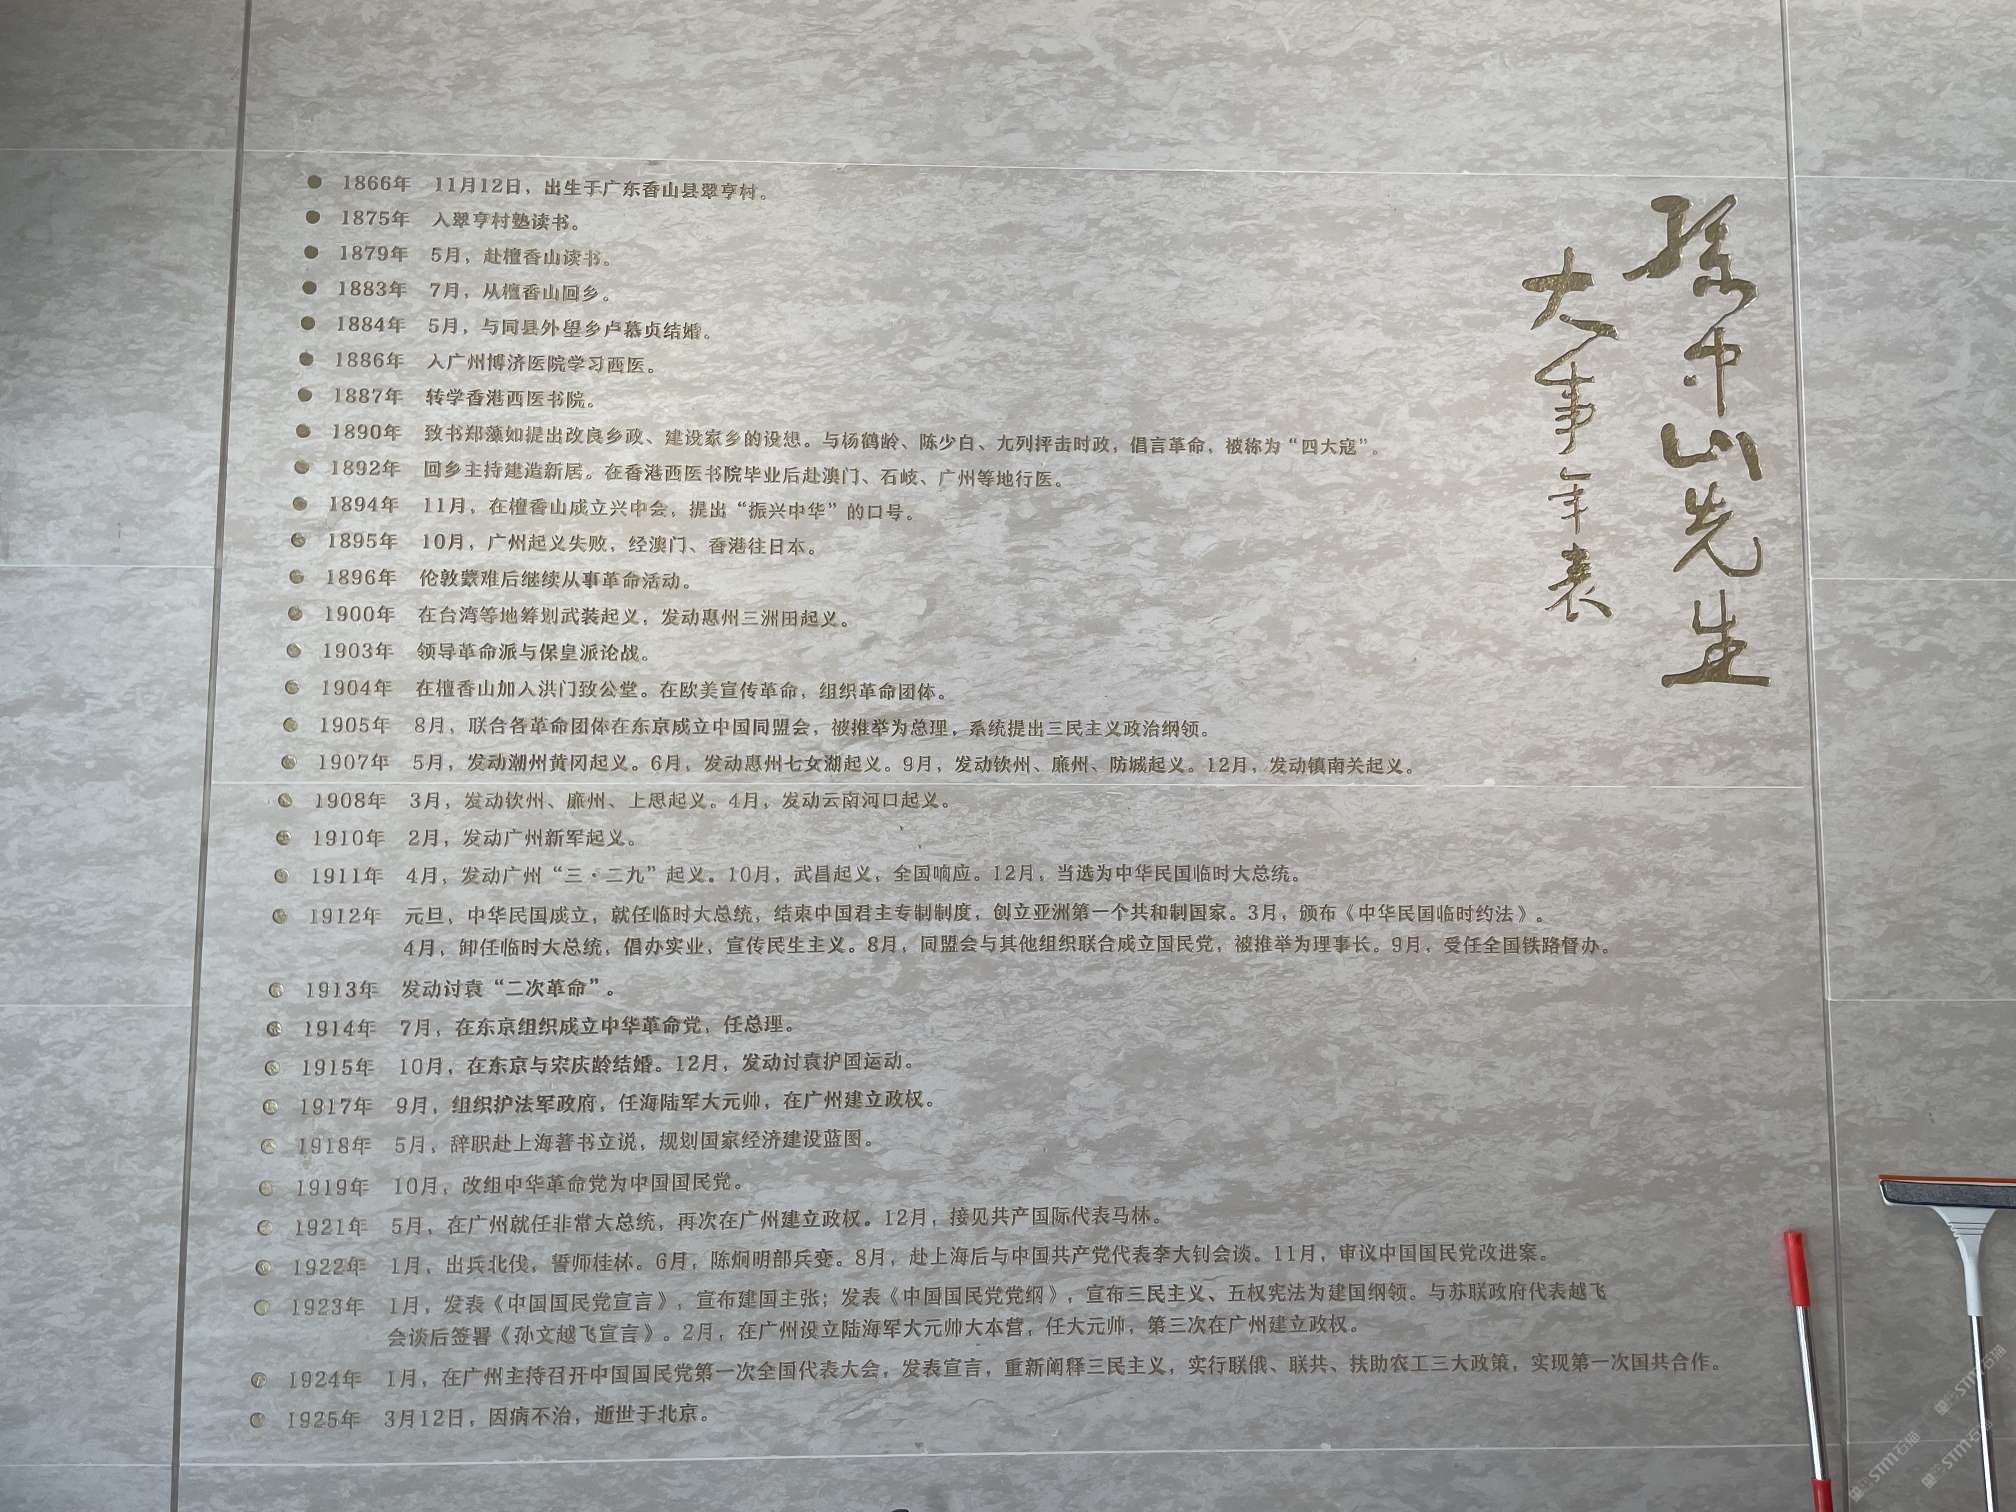 孫中山先生
大事年表
1866年 11月12日，出生于广东香山县翠亨村。
1875年 入翠亨村塾读书。
1879年 5月，赴檀香山读书。
1883年 7月，从檀香山回乡。
1884年 5月，与同县外壆乡卢慕贞结婚。
1886年 入广州博济医院学习西医。
1887年 转学香港西医书院。
1890年 致书郑藻如提出改良乡政、建设家乡的设想。与杨鹤龄、陈少白、尢列抨击时政，倡言革命，被称为“四大寇”。
1892年 回乡主持建造新居。在香港西医书院毕业后赴澳门、石岐、广州等地行医。
1894年 11月，在檀香山成立兴中会，提出“振兴中华”的口号。
1895年 10月，广州起义失败，经澳门、香港往日本。
1896年 伦敦蒙难后继续从事革命活动。
1900年 在台湾等地筹划武装起义，发动惠州三洲田起义。
1903年 领导革命派与保皇派论战。
1904年 在檀香山加入洪门致公堂。在欧美宣传革命，组织革命团体。
1905年 8月，联合各革命团体在东京成立中国同盟会，被推举为总理，系统提出三民主义政治纲领。
1907年 5月，发动潮州黄冈起义。6月，发动惠州七女湖起义。9月，发动钦州、廉州、防城起义。12月，发动镇南关起义。
1908年 3月，发动钦州、廉州、上思起义。4月，发动云南河口起义。
1910年 2月，发动广州新军起义。
1911年 4月，发动广州“三·二九”起义。10月，武昌起义，全国响应。12月，当选为中华民国临时大总统。
1912年 元旦，中华民国成立，就任临时大总统，结束中国君主专制制度，创立亚洲第一个共和制国家。3月，颁布《中华民国临时约法》。
4月，卸任临时大总统，倡办实业，宣传民生主义。8月，同盟会与其他组织联合成立国民党，被推举为理事长。9月，受任全国铁路督办。
1913年 发动讨袁“二次革命”。
1914年 7月，在东京组织成立中华革命党，任总理。
1915年 10月，在东京与宋庆龄结婚。12月，发动讨袁护国运动。
1917年 9月，组织护法军政府，任海陆军大元帅，在广州建立政权。
1918年 5月，辞职赴上海著书立说，规划国家经济建设蓝图。
1919年 10月，改组中华革命党为中国国民党。
1921年 5月，在广州就任非常大总统，再次在广州建立政权。12月，接见共产国际代表马林。
1922年 1月，出兵北伐，誓师桂林。6月，陈炯明部兵变。8月，赴上海后与中国共产党代表李大钊会谈。11月，审议中国国民党改进案。
1923年 1月，发表《中国国民党宣言》，宣布建国主张；发表《中国国民党党纲》，宣布三民主义、五权宪法为建国纲领。与苏联政府代表越飞
会谈后签署《孙文越飞宣言》。2月，在广州设立陆海军大元帅大本营，任大元帅，第三次在广州建立政权。
1924年 1月，在广州主持召开中国国民党第一次全国代表大会，发表宣言，重新阐释三民主义，实行联俄、联共、扶助农工三大政策，实现第一次国共合作。
1925年 3月12日，因病不治，逝世于北京。